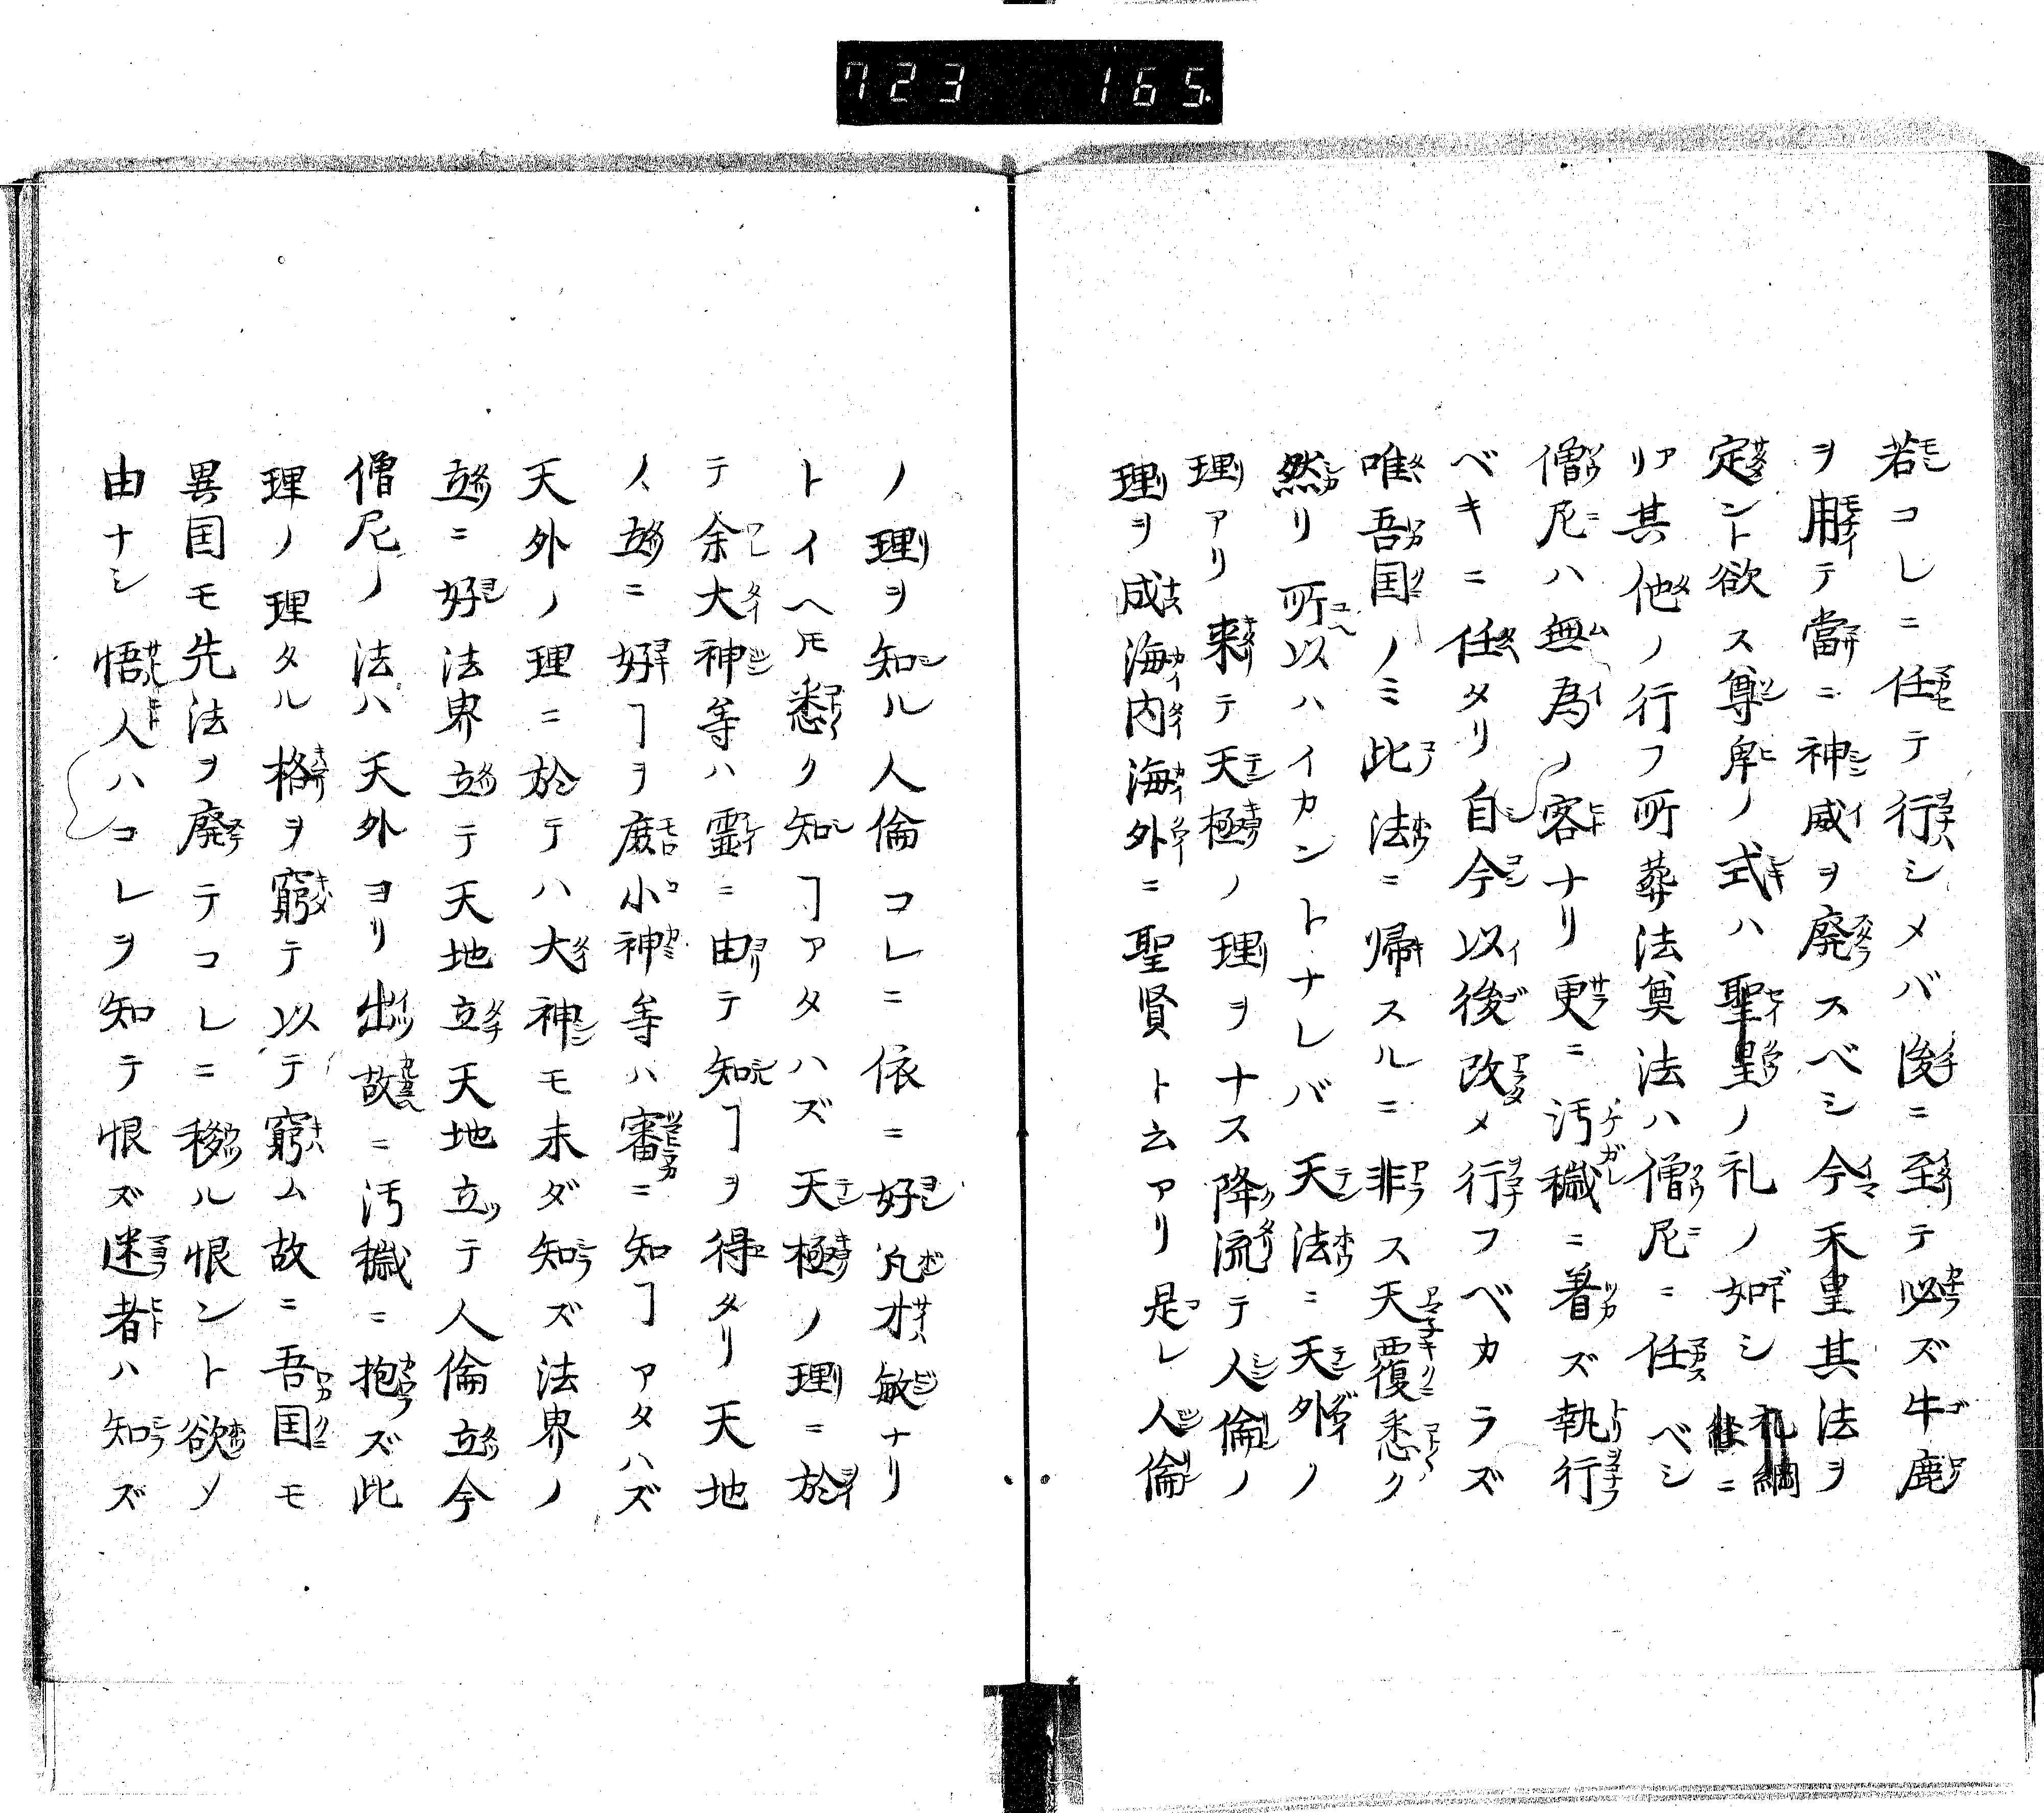 723 165.
若コレニ任テ行シメバ後ニ至テ必ズ牛鹿
ヲ用テ當ニ神威ヲ廃スベシ今禾皇其法ヲ
定ント欲ス尊卑ノ式ハ聖皇ノ礼ノ如シ礼綱ニ
リア其他ノ行フ所葬法奠法ハ僧尼ニ任ベシ
僧尼ハ無為ノ客ナリ更ニ汚穢ニ着ズ執行
ベキニ任タリ自今以後改メ行フベカラズ
唯吾国ノミ此法ニ帰スルニ非ス天覆悉ク
然リ所以ハイカントナレバ天法ニ天外ノ
理アリ来テ天極ノ理ヲナス降流テ人倫ノ
理ヲ成海内海外ニ聖賢ト云アリ是レ人倫
ノ理ヲ知ル人倫コレニ依ニ好凡才敏ナリ
トイヘ𪜈悉ク知ヿアタハズ天極ノ理ニ於
テ余大神等ハ霊ニ由テ知ヿヲ得タリ天地
ノ立ニ好ヿヲ庶小神等ハ審ニ知ヿアタハズ
天外ノ理ニ於テハ大神モ未ダ知ズ法界ノ
立ニ好法界立テ天地立天地立テ人倫立今
僧尼ノ法ハ天外ヨリ出故ニ汚穢ニ抱ズ此
理ノ理タル格ヲ窮テ以テ窮ム故ニ吾国モ
異国モ先法ヲ廃テコレニ移ル恨ント欲メ
由ナシ悟人ハコレヲ知テ恨ズ迷者ハ知ズ